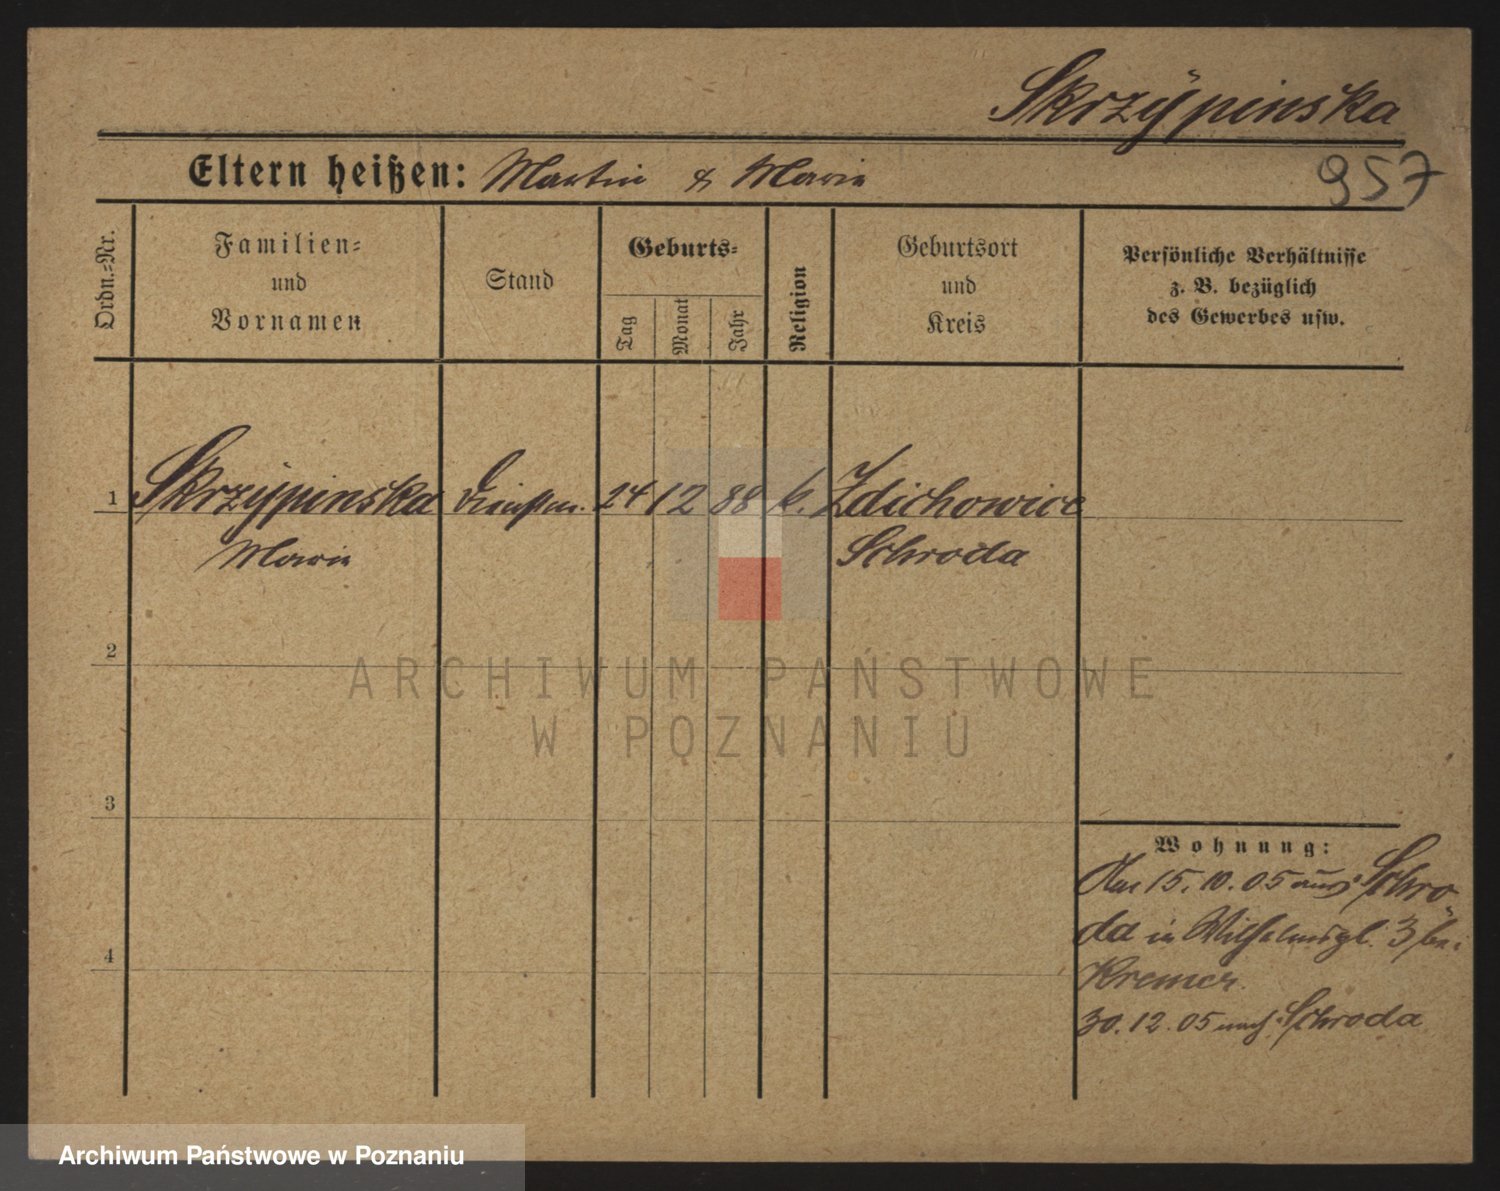 Skrzÿpinska
957
Eltern heißen: Martin & Marie
Ordn.=Nr.
Familien=
und
Vornamen
Stand
Geburts=
Tag
Monat
Jahr
Religion
Geburtsort
und
Kreis
Persönliche Verhältnisse
z. B. bezüglich
des Gewerbes usw.
1 Skrzÿpinska Dienstm. 24 12 88 k. Zdichowice
Marie Schroda
2
3
4
Wohnung:
Am 15. 10. 05 aus Schro-
da in Wilhelmspl. 3 bei
Kremer.
30. 12. 05 nach Schroda
ARCHIWUM PAŃSTWOWE
W POZNANIU
Archiwum Państwowe w Poznaniu